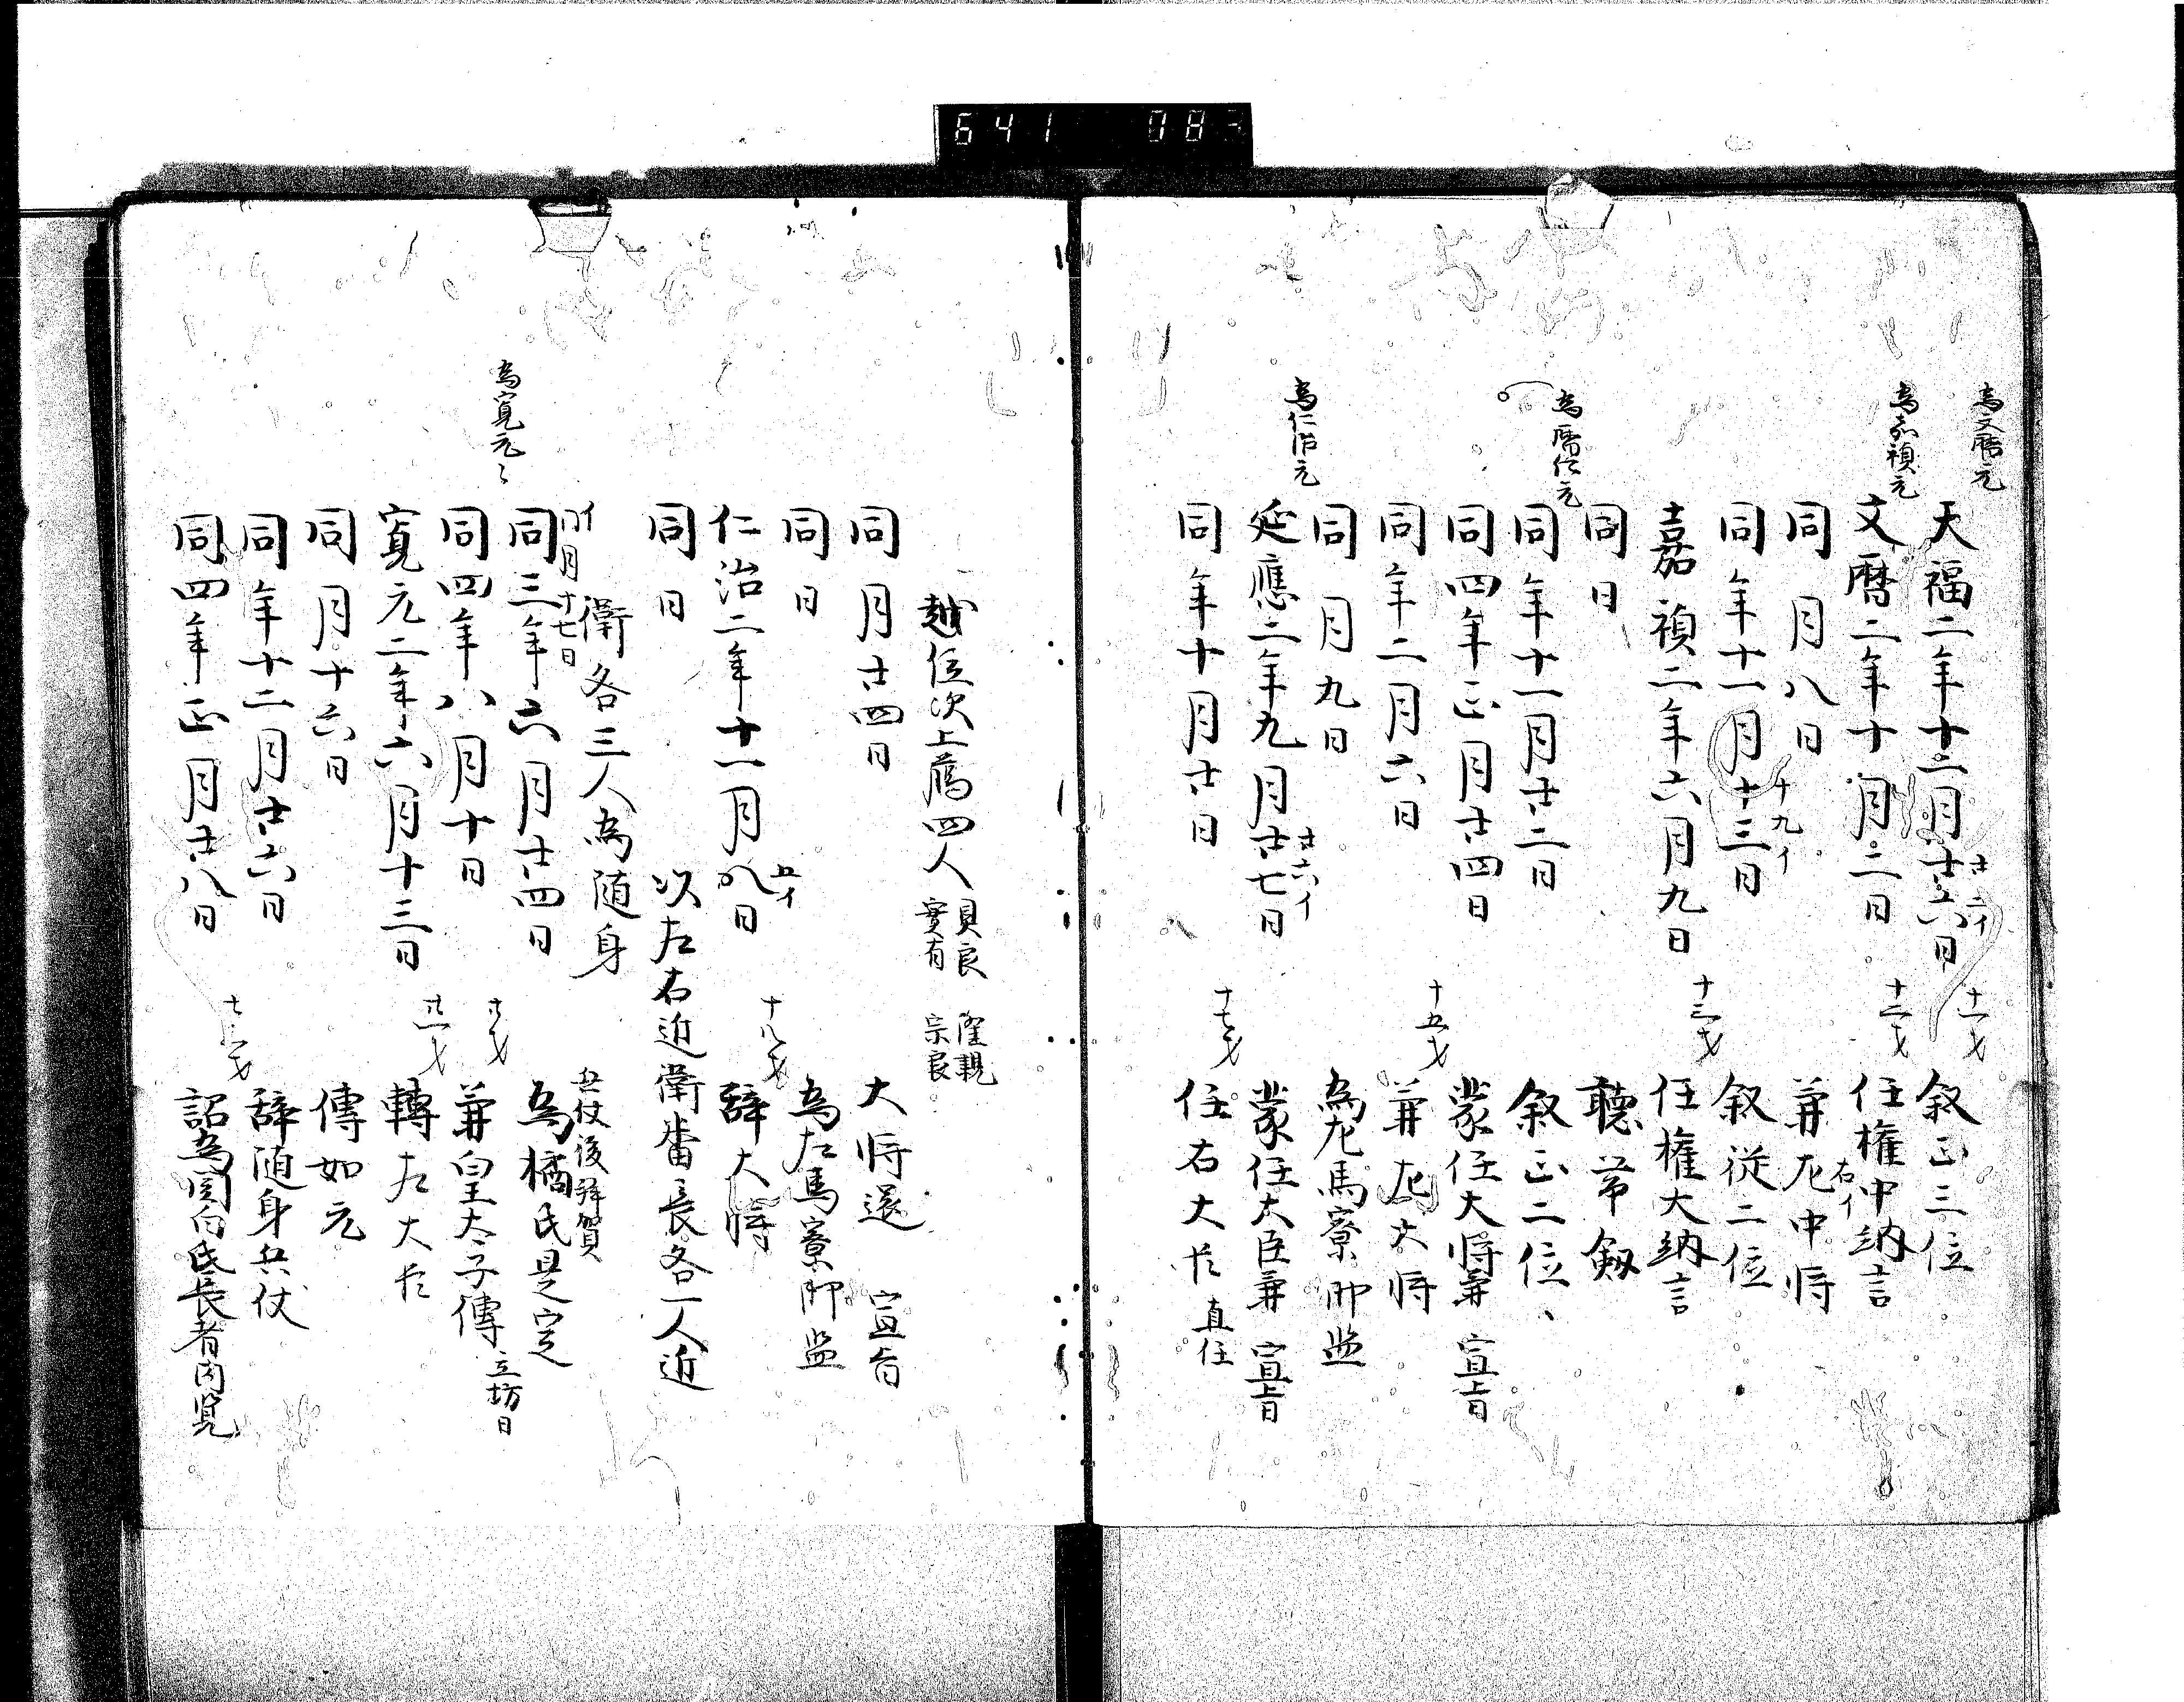 641 078
為文暦元
天福二年十二月廿六日 十一才 叙正三位
廿一イ
為嘉禎元
文暦二年十月二日 十二才 任権中納言
同月八日 兼左中将
右イ
同年十一月十三日 叙従二位
十九イ
嘉禎二年六月九日 十三才 任権大納言
同日 聴帯剱
同年十一月廿二日 叙正二位
為暦仁元
同四年正月廿四日 蒙任大将兼宣旨
同年二月六日 十五才 兼左大将
同月九日 為左馬寮御監
為仁治元
延應二年九月廿七日 蒙任大臣兼宣旨
廿六イ
同年十月廿日 十七才 任右大臣 直任
越位次上臈四人 実有 良 宗良 親
同月廿四日 大将還宣旨
同日 為左馬寮御監
仁治二年十一月八日 十八才 辞大将
五イ
同日 以左右近衛番長各一人近
衛各三人為随身
兵仗後拜賀
同月十七日
イ
同三年六月廿四日 為橘氏是定
為寛元々
同四年八月十日 廿才 兼皇太子傅 立坊日
寛元二年六月十三日 廿一才 轉左大臣
同月十六日 傅如元
同年十二月廿六日 辞随身兵仗
同四年正月廿八日 詔為関白氏長者内覧